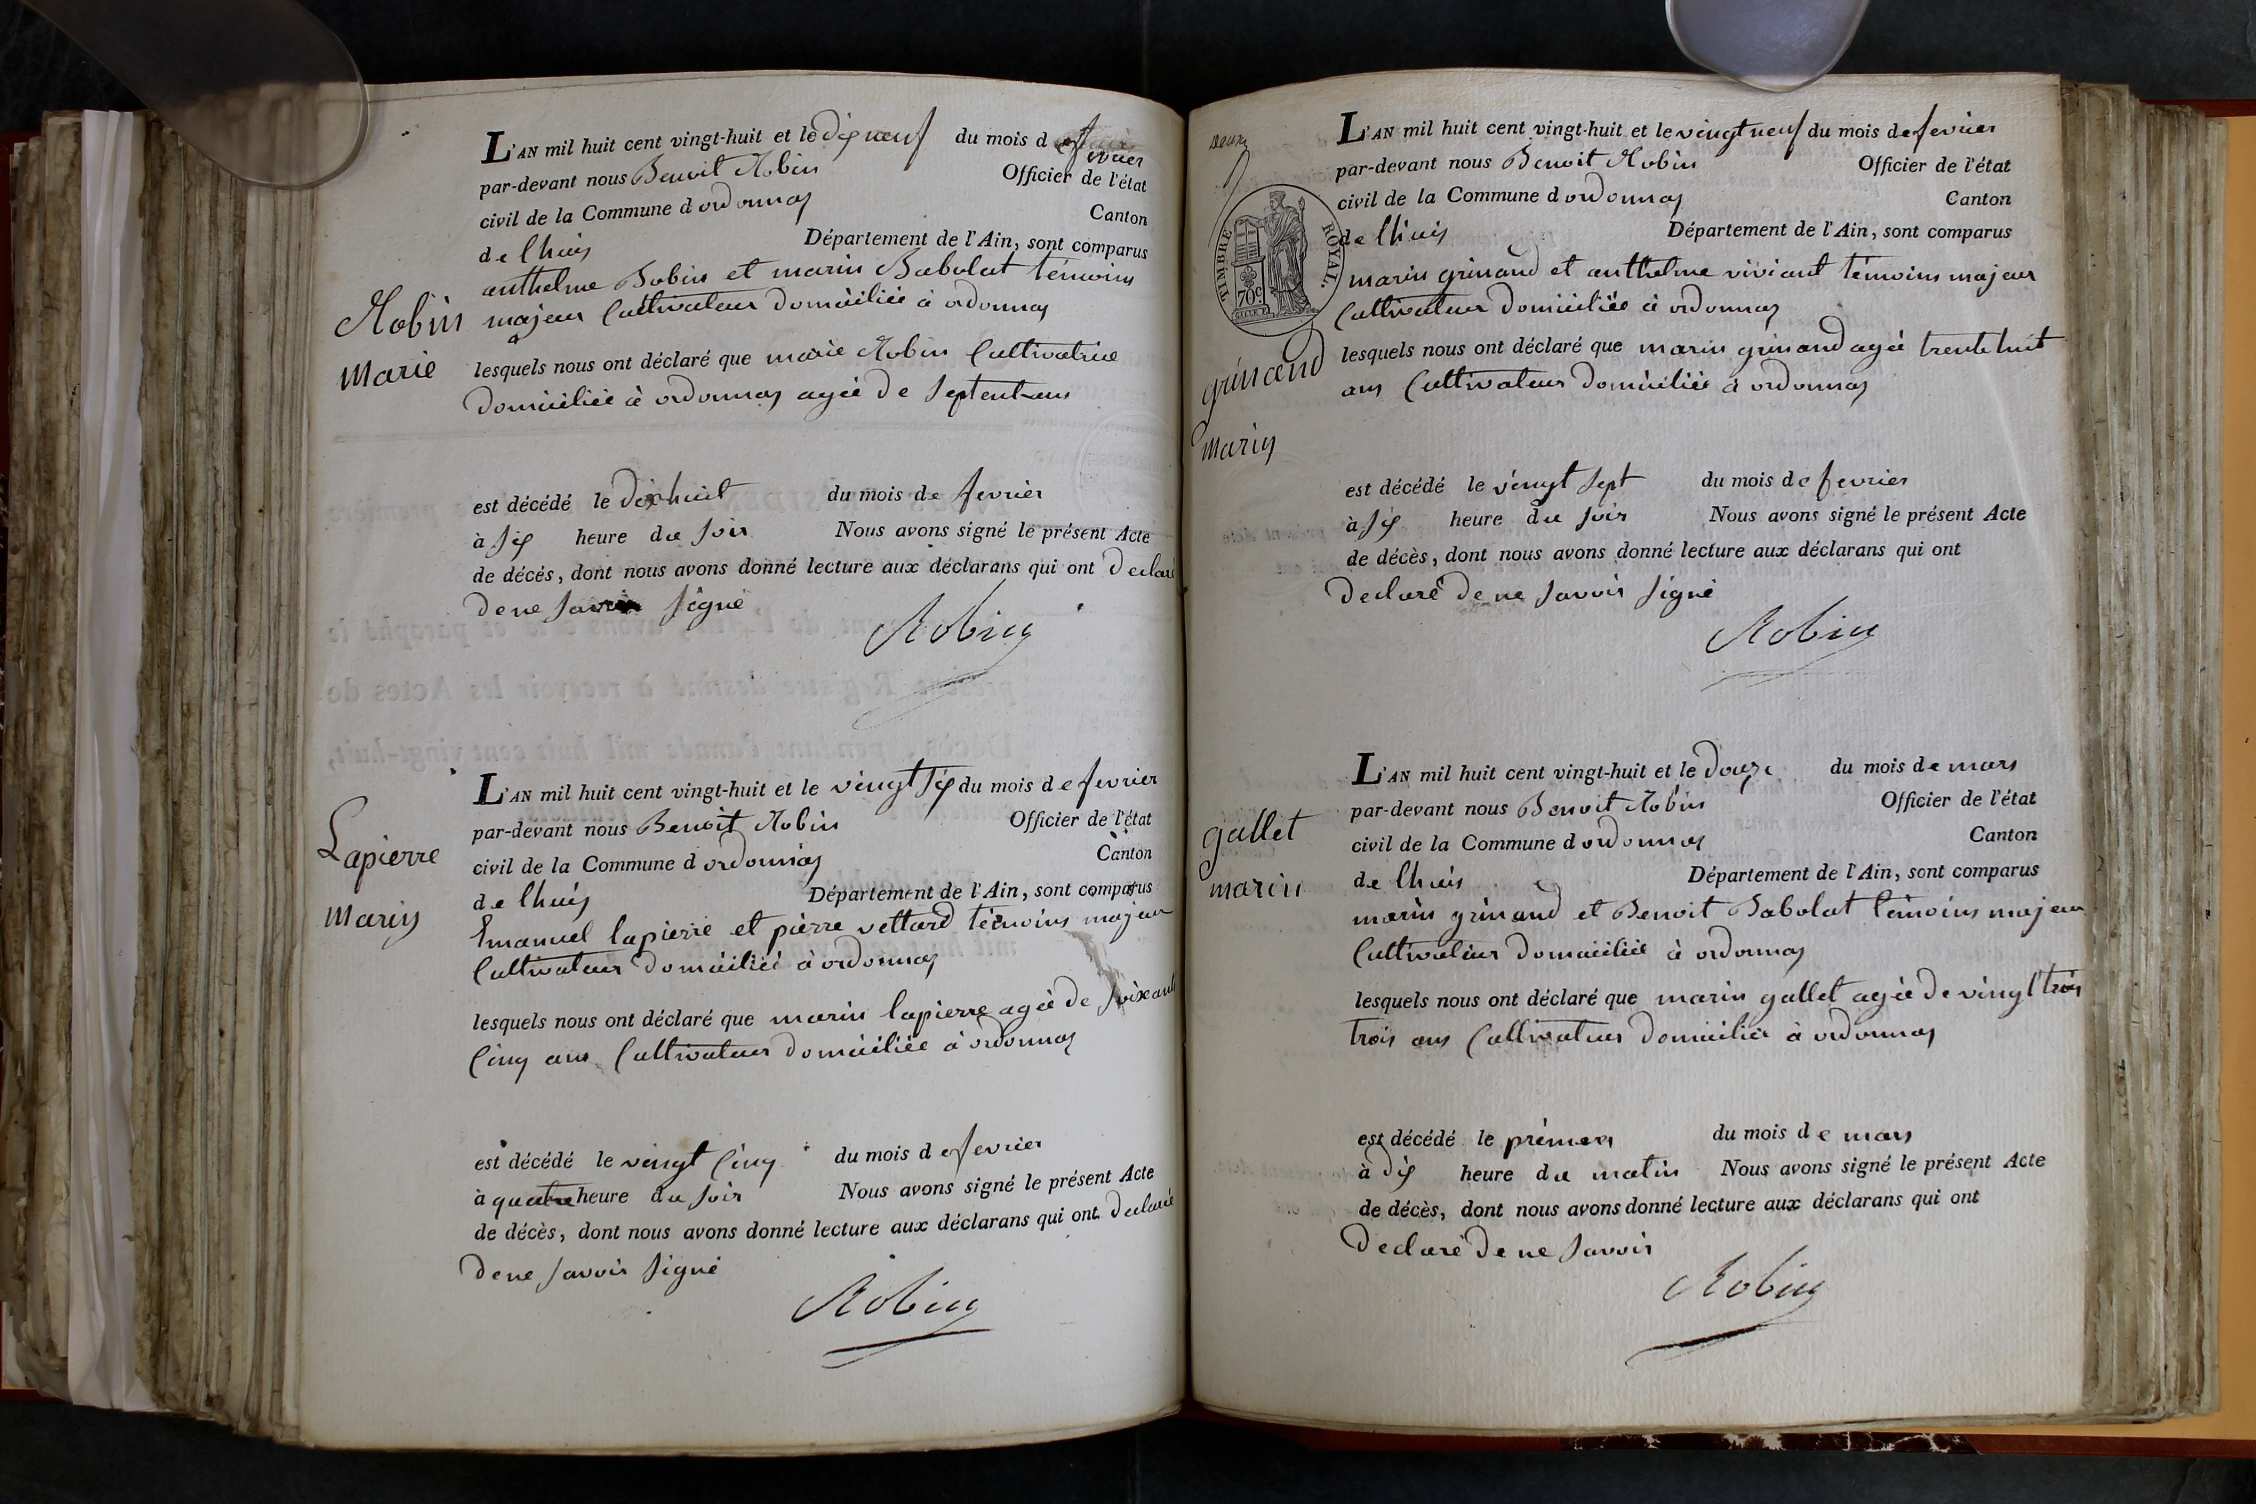 L'AN mil huit cent vingt-huit et le dix neuf du mois de fevrier
par-devant nous Benoit Robin Officier de l'état
civil de la Commune d ordonnas Canton
de lhuis Département de l'Ain, sont comparus
anthelme Bobin et marin Babolat témoins
majeur Cultivateur domicilié à ordonnas
Robin
Marie
lesquels nous ont déclaré que marie Robin Cultivatrice
domiciliée à ordonnas agée de septent ans
est décédé le dix huit du mois de fevrier
à six heure du soir Nous avons signé le présent Acte
de décès, dont nous avons donné lecture aux déclarans qui ont declaré
de ne savoir signé
Robin
L'AN mil huit cent vingt-huit et le vingt six du mois de fevrier
par-devant nous Benoit Robin Officier de l'état
civil de la Commune d ordonnas Canton
de lhuis Département de l'Ain, sont comparus
Lapierre
Marin
Emanuel lapierre et pierre vettard témoins majeur
Cultivateur domicilié à ordonnas
lesquels nous ont déclaré que marin lapierre agée de soixante
Cinq ans Cultivateur domiciliée à ordonnas
est décédé le vingt Cinq du mois de fevrier
à quatre heure du soir Nous avons signé le présent Acte
de décès, dont nous avons donné lecture aux déclarans qui ont declaré
de ne savoir signé
Robin
deux
TIMBRE ROYAL.
70c
L'AN mil huit cent vingt-huit et le vingt neuf du mois de fevrier
par-devant nous Benoit Robin Officier de l'état
civil de la Commune d ordonnas Canton
de lhuis Département de l'Ain, sont comparus
marin grinand et anthelme viviant témoins majeur
Cultivateur domiciliée à ordonnas
grinand
marin
lesquels nous ont déclaré que marin grinand agée trente huit
ans Cultivateur domiciliée à ordonnas
est décédé le vingt sept du mois de fevrier
à six heure du soir Nous avons signé le présent Acte
de décès, dont nous avons donné lecture aux déclarans qui ont
declaré de ne savoir signé
Robin
L'AN mil huit cent vingt-huit et le douze du mois de mars
par-devant nous Benoit Robin Officier de l'état
civil de la Commune d ordonnas Canton
de lhuis Département de l'Ain, sont comparus
gallet
marin
marin grinand et Benoit Babolat témoins majeur
Cultivateur domiciliée à ordonnas
lesquels nous ont déclaré que marin gallet agée de vingt trois
trois ans Cultivateur domicilié à ordonnas
est décédé le premier du mois de mars
à dix heure du matin Nous avons signé le présent Acte
de décès, dont nous avons donné lecture aux déclarans qui ont
declaré de ne savoir
Robin